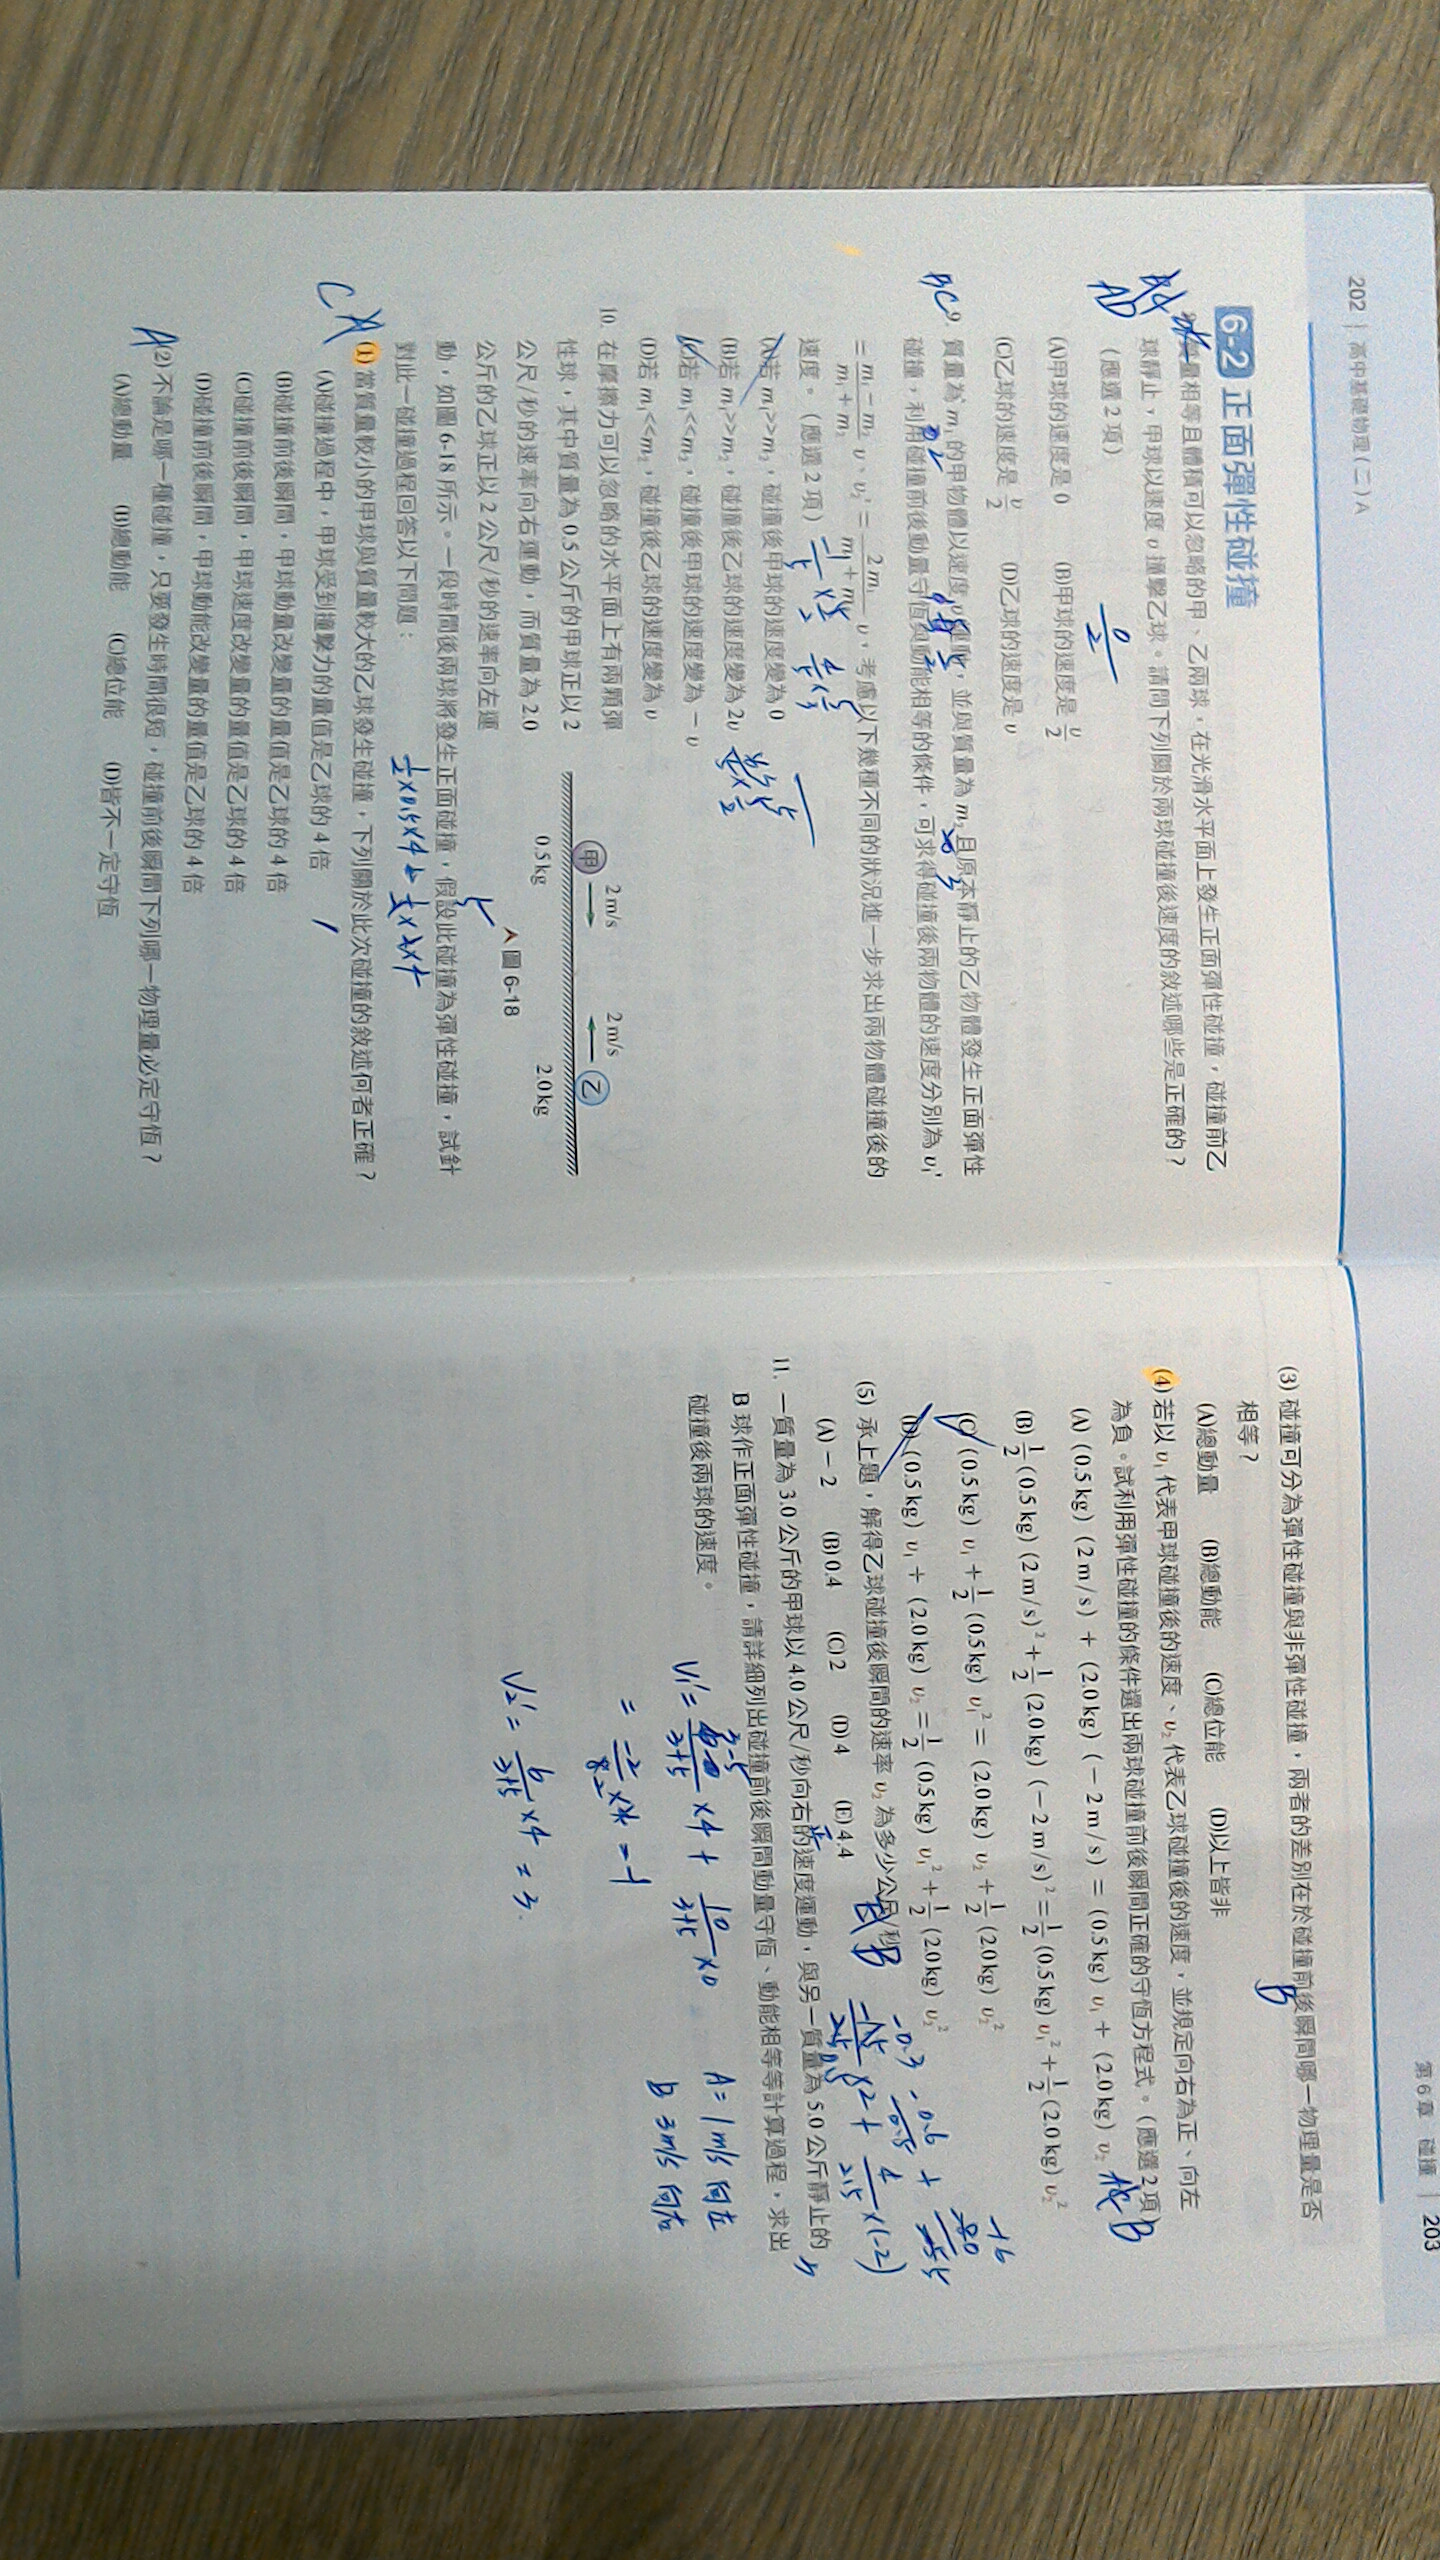 202 | 高中基礎物理(二)A
6-2 正面彈性碰撞
量相等且體積可以忽略的甲、乙兩球,在光滑水平面上發生正面彈性碰撞,碰撞前乙
球靜止,甲球以速度 v 撞擊乙球。請問下列關於兩球碰撞後速度的敘述哪些是正確的?
(應選 2 項)
AD
(A)甲球的速度是 0 (B)甲球的速度是 v/2
(C)乙球的速度是 v/2 (D)乙球的速度是 v
BC 9. 質量為 m₁ 的甲物體以速度 v 運動,並與質量為 m₂ 且原本靜止的乙物體發生正面彈性
碰撞,利用碰撞前後動量守恆與動能相等的條件,可求得碰撞後兩物體的速度分別為 v₁'
= (m₁ − m₂)/(m₁ + m₂) v、v₂' = 2m₁/(m₁ + m₂) v,考慮以下幾種不同的狀況進一步求出兩物體碰撞後的
速度。(應選 2 項)
(A)若 m₁>>m₂,碰撞後甲球的速度變為 0
(B)若 m₁>>m₂,碰撞後乙球的速度變為 2v
(C)若 m₁<<m₂,碰撞後甲球的速度變為 −v
(D)若 m₁<<m₂,碰撞後乙球的速度變為 v
10. 在摩擦力可以忽略的水平面上有兩顆彈
性球,其中質量為 0.5 公斤的甲球正以 2
公尺/秒的速率向右運動,而質量為 2.0
公斤的乙球正以 2 公尺/秒的速率向左運
動,如圖 6-18 所示。一段時間後兩球將發生正面碰撞,假設此碰撞為彈性碰撞,試針
對此一碰撞過程回答以下問題:
2 m/s 2 m/s
甲 乙
0.5 kg 2.0 kg
圖 6-18
½×0.5×4+½×2×4
C (1) 當質量較小的甲球與質量較大的乙球發生碰撞,下列關於此次碰撞的敘述何者正確?
(A)碰撞過程中,甲球受到撞擊力的量值是乙球的 4 倍
(B)碰撞前後瞬間,甲球動量改變量的量值是乙球的 4 倍
(C)碰撞前後瞬間,甲球速度改變量的量值是乙球的 4 倍
(D)碰撞前後瞬間,甲球動能改變量的量值是乙球的 4 倍
A (2) 不論是哪一種碰撞,只要發生時間很短,碰撞前後瞬間下列哪一物理量必定守恆?
(A)總動量 (B)總動能 (C)總位能 (D)皆不一定守恆
第 6 章 碰撞 | 203
(3) 碰撞可分為彈性碰撞與非彈性碰撞,兩者的差別在於碰撞前後瞬間哪一物理量是否
相等? B
(A)總動量 (B)總動能 (C)總位能 (D)以上皆非
(4) 若以 v₁ 代表甲球碰撞後的速度、v₂ 代表乙球碰撞後的速度,並規定向右為正、向左
為負。試利用彈性碰撞的條件選出兩球碰撞前後瞬間正確的守恆方程式。(應選 2 項)
(A) (0.5 kg) (2 m/s) + (2.0 kg) (−2 m/s) = (0.5 kg) v₁ + (2.0 kg) v₂
(B) ½ (0.5 kg) (2 m/s)² + ½ (2.0 kg) (−2 m/s)² = ½ (0.5 kg) v₁² + ½ (2.0 kg) v₂²
(C) (0.5 kg) v₁ + ½ (0.5 kg) v₁² = (2.0 kg) v₂ + ½ (2.0 kg) v₂²
(D) (0.5 kg) v₁ + (2.0 kg) v₂ = ½ (0.5 kg) v₁² + ½ (2.0 kg) v₂²
(5) 承上題,解得乙球碰撞後瞬間的速率 v₂ 為多少公尺/秒 B
(A) −2 (B) 0.4 (C) 2 (D) 4 (E) 4.4
11. 一質量為 3.0 公斤的甲球以 4.0 公尺/秒向右的速度運動,與另一質量為 5.0 公斤靜止的
B 球作正面彈性碰撞,請詳細列出碰撞前後瞬間動量守恆、動能相等等計算過程,求出
碰撞後兩球的速度。
V₁' = (3-5)/(3+5) ×4 + 10/(3+5) ×0
= -2/8 ×4 = -1
V₂' = 6/(3+5) ×4 = 3.
A = 1 m/s 向左
B 3 m/s 向右